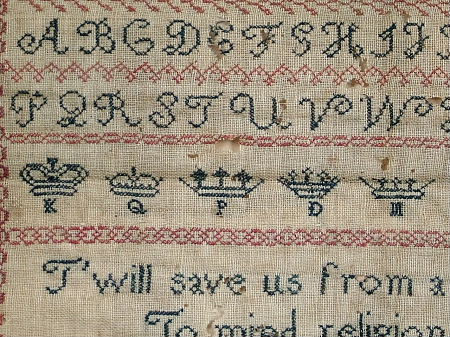 A B C D E F S H I J
P Q R S T U V W
K Q P D M
T'will save us from a
To mind religion